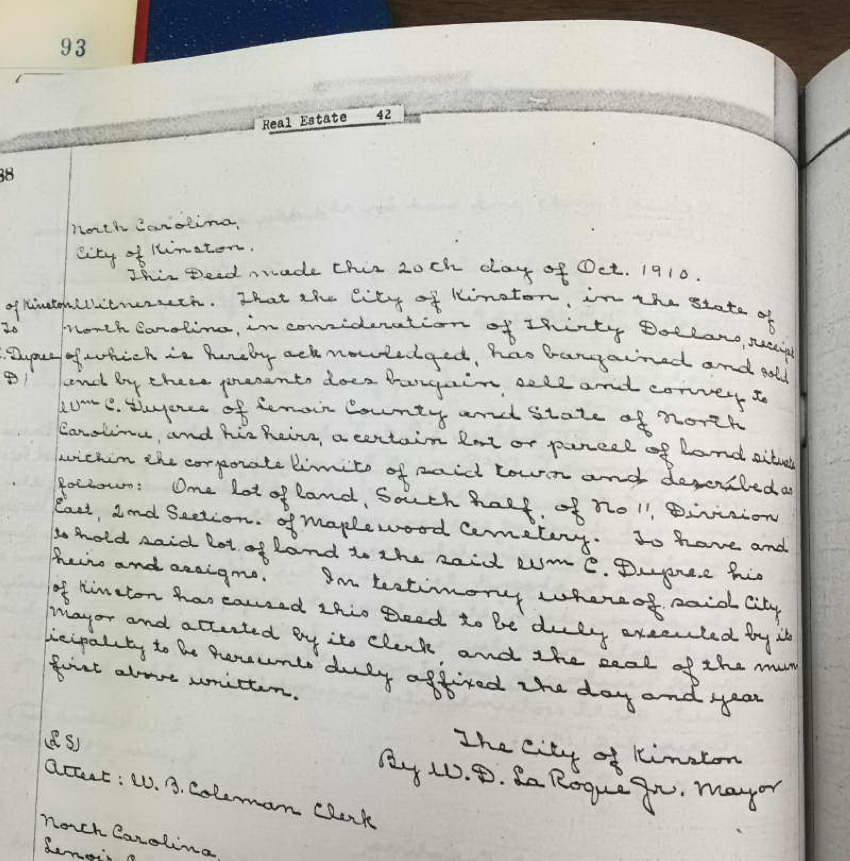 93
Real Estate 42
38
North Carolina,
City of Kinston.
This Deed made this 20th day of Oct. 1910.
of Kinston Witnesseth. That the City of Kinston, in the State of
To North Carolina, in consideration of Thirty Dollars, receipt
C. Dupree of which is hereby acknowledged, has bargained and sold
D/ and by these presents does bargain, sell and convey to
Wm C. Dupree of Lenoir County and State of North
Carolina, and his heirs, a certain lot or parcel of land situate
within the corporate limits of said town and described as
follows: One lot of land, South half, of No 11, Division
East, 2nd Section. of Maplewood Cemetery. To have and
to hold said lot of land to the said Wm C. Dupree his
heirs and assigns. In testimony whereof, said City
of Kinston has caused this Deed to be duly executed by its
Mayor and attested by its Clerk, and the seal of the mun
icipality to be hereunto duly affixed the day and year
first above written.
The City of Kinston
(LS) By W. D. La Roque Jr. Mayor
Attest: W. B. Coleman Clerk
North Carolina,
Lenoir